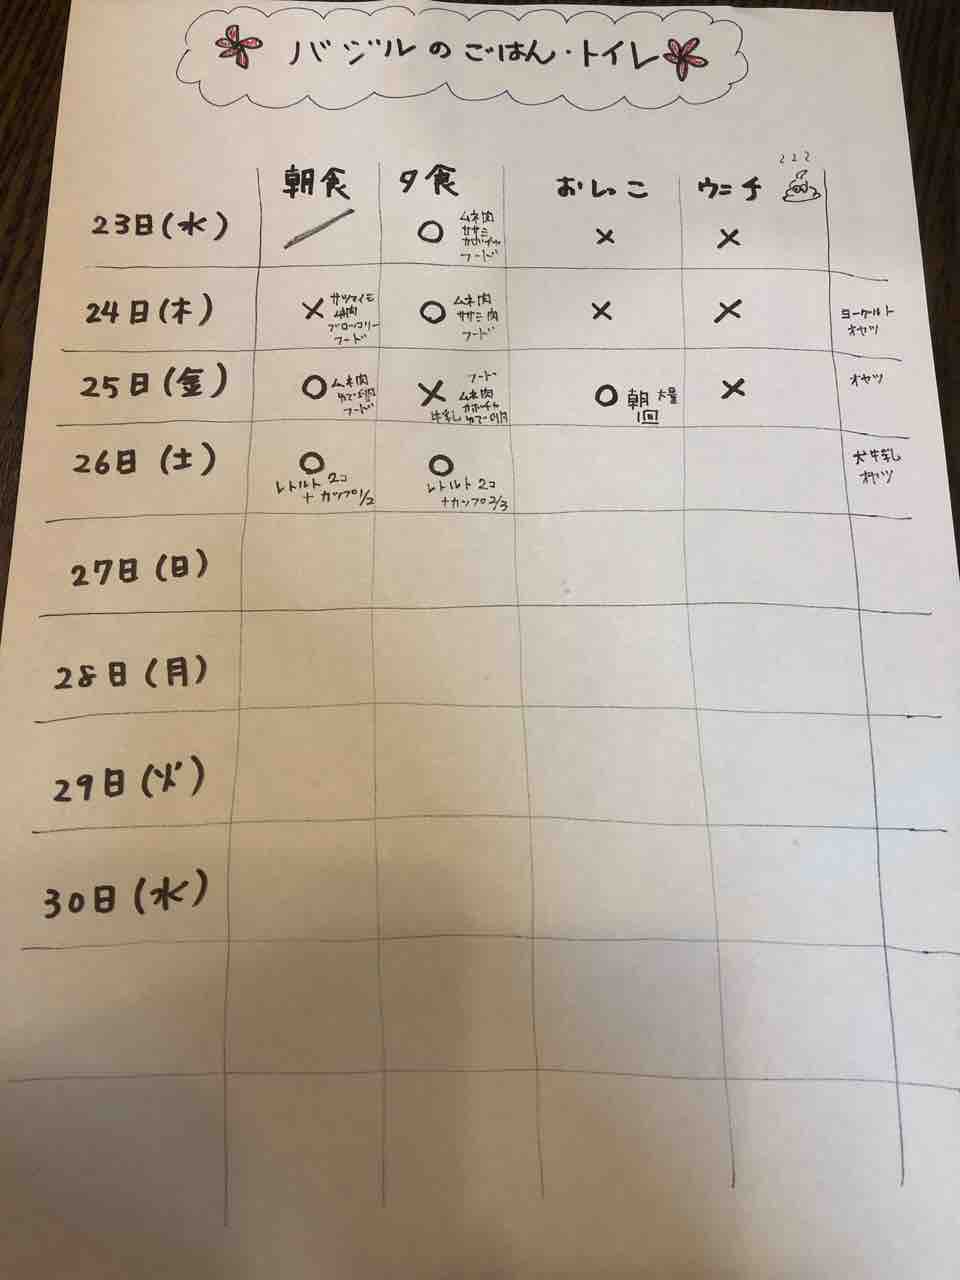 バジルのごはん・トイレ
朝食 夕食 おしっこ ウンチ
23日(水) / ○ ムネ肉 ササミ カボチャ フード × ×
24日(木) × サツマイモ ムネ肉 ブロッコリー フード ○ ムネ肉 ササミ肉 フード × × ヨーグルト オヤツ
25日(金) ○ ムネ肉 ゆで卵 フード × フード ムネ肉 カボチャ 牛乳 ゆで卵 ○ 朝 大量 1回 × オヤツ
26日(土) ○ レトルト2コ +カップ1/2 ○ レトルト2コ +カップ2/3 犬牛乳 オヤツ
27日(日)
28日(月)
29日(火)
30日(水)